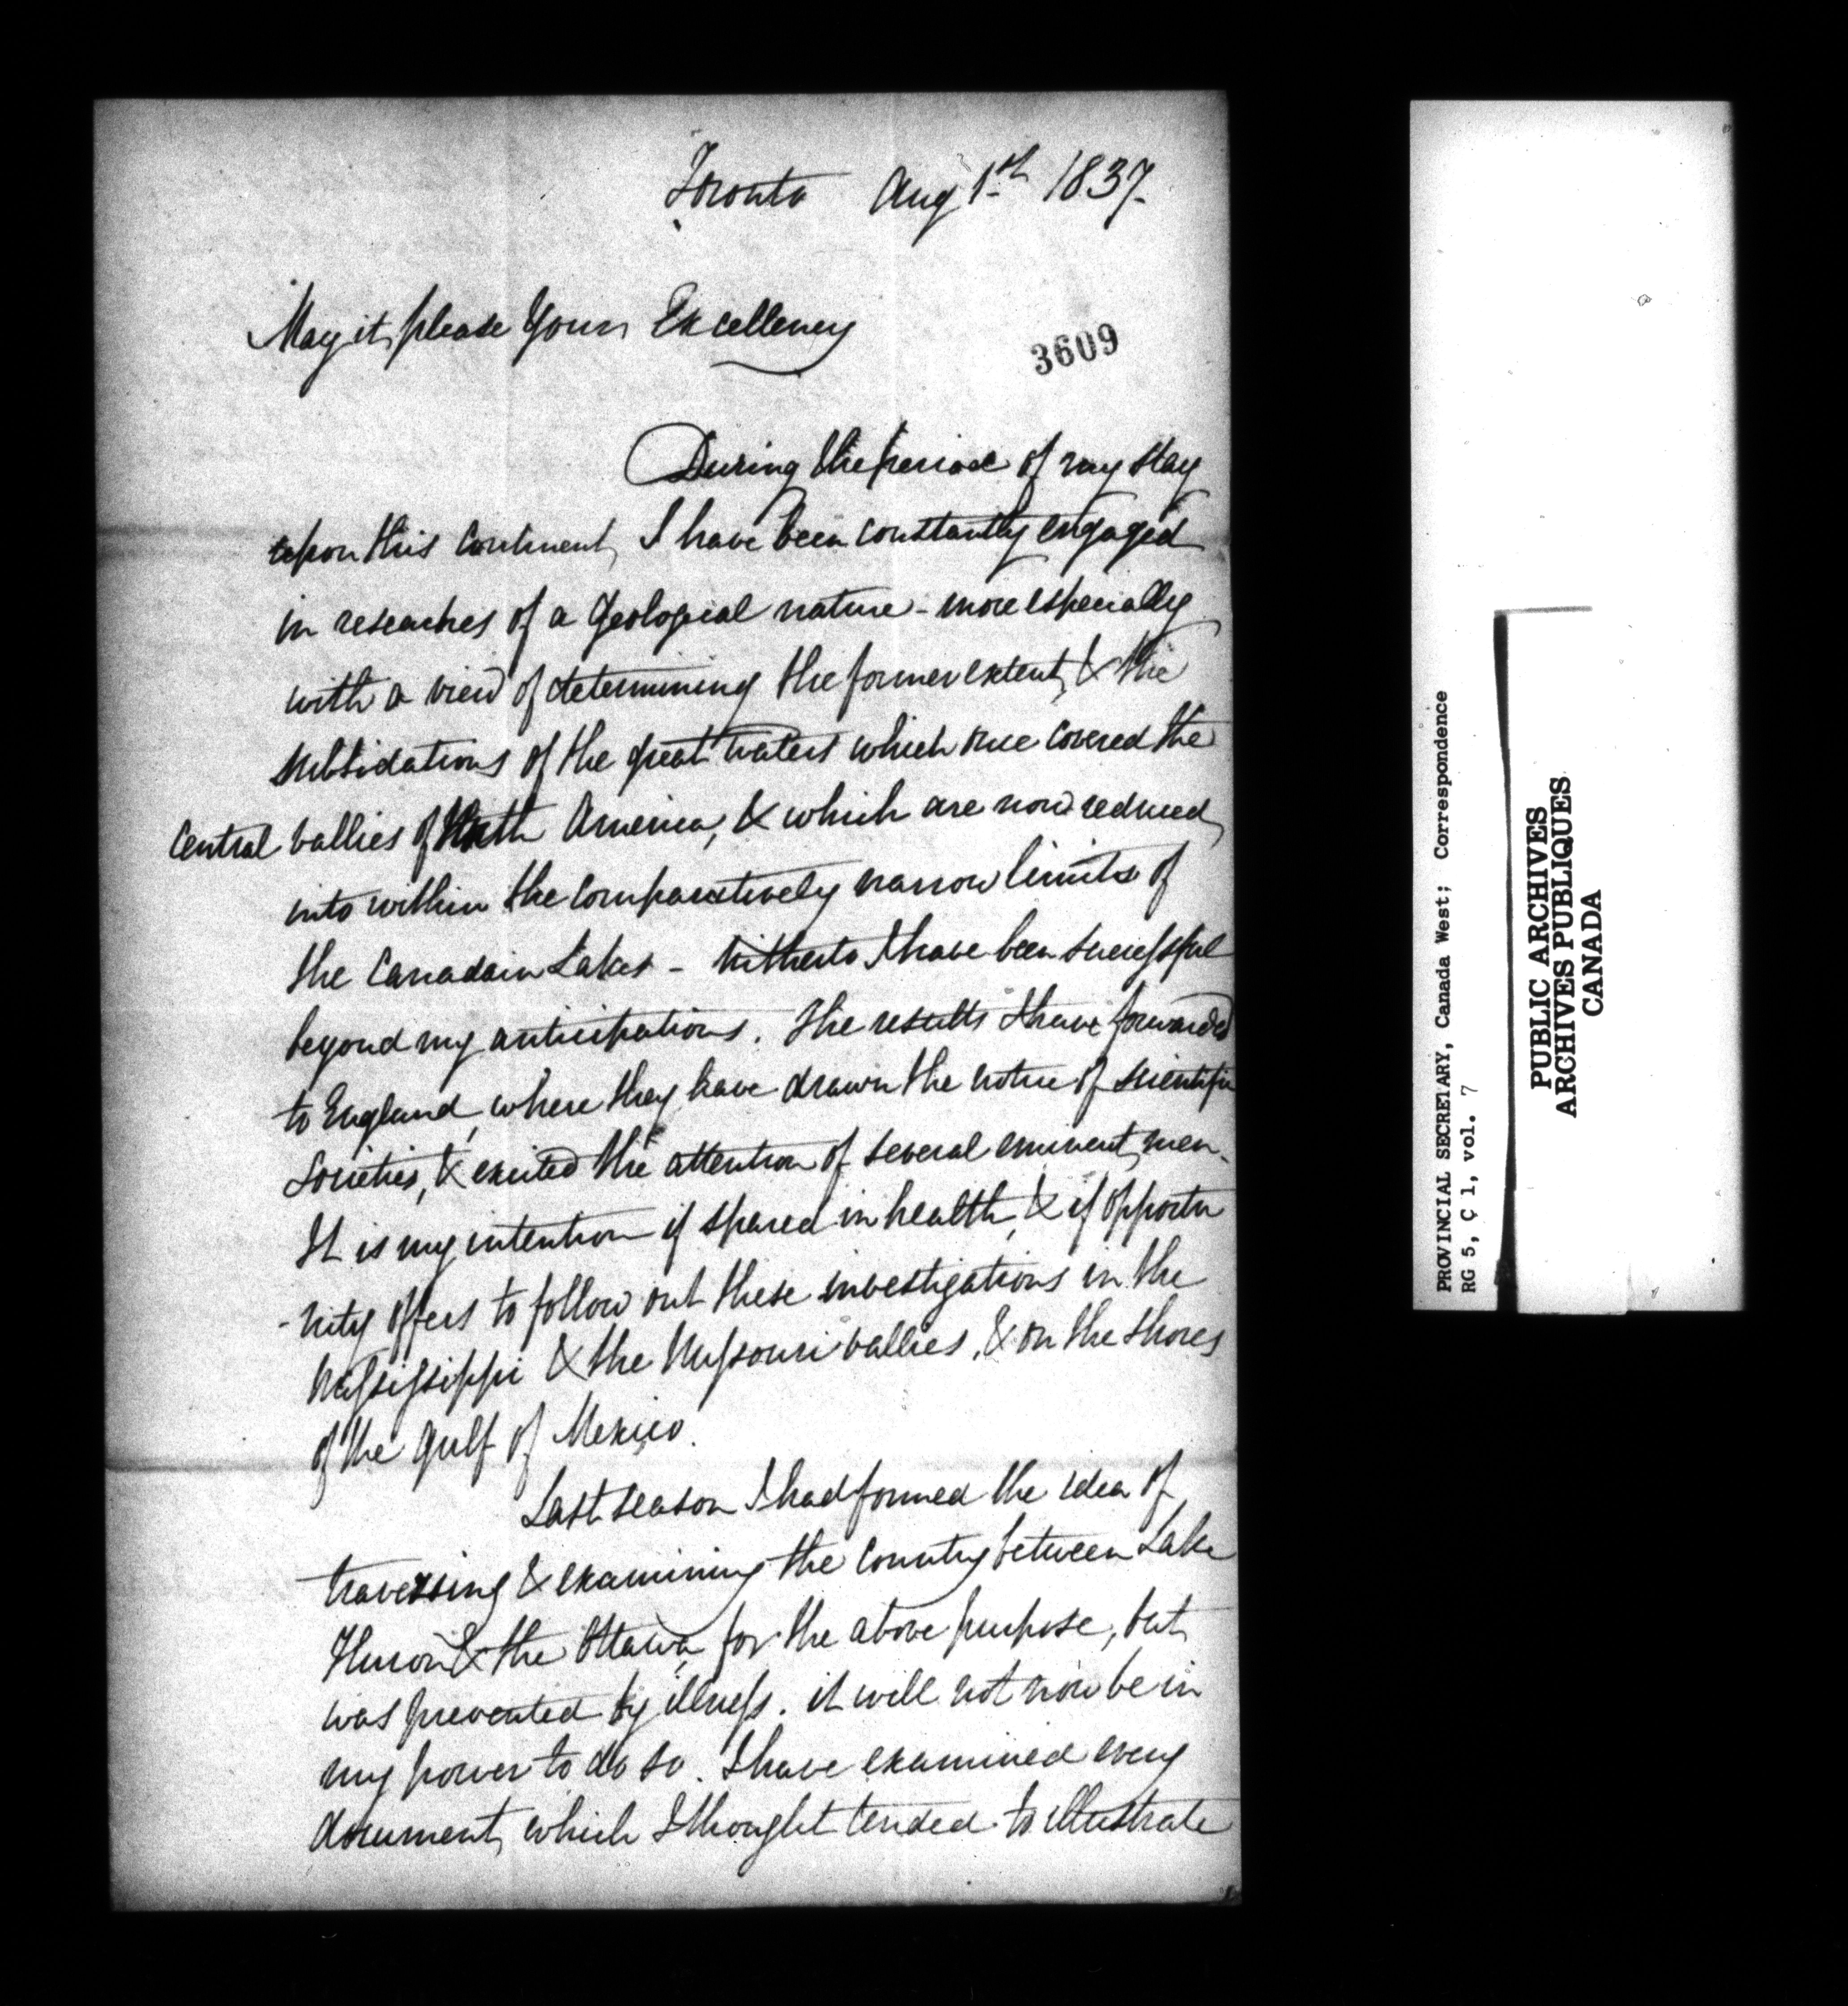 Toronto Aug 1st 1837.
May it please Your Excellency
3609
During the period of my stay
upon this Continent, I have been constantly engaged
in researches of a Geological nature - more especially
with a view of determining the former extent, & the
subsidations of the great waters which once covered the
Central vallies of North America, & which are now reduced
into within the comparatively narrow limits of
the Canadain Lakes - hitherto I have been successful
beyond my anticipations. The results I have forwarded
to England, where they have drawn the notice of scientific
Societies, & excited the attention of several eminent men.
It is my intention if spared in health, & if opportu
-nity offers to follow out these investigations in the
Mississippi & the Missouri vallies, & on the shores
of the Gulf of Mexico.
Last season I had formed the idea of
traversing & examining the Country between Lake
Huron & the Ottawa for the above purpose, but
was prevented by illness. it will not now be in
my power to do so. I have examined every
document, which I thought tended to illustrate
PROVINCIAL SECRETARY, Canada West; Correspondence
RG 5, C 1, vol. 7
PUBLIC ARCHIVES
ARCHIVES PUBLIQUES
CANADA